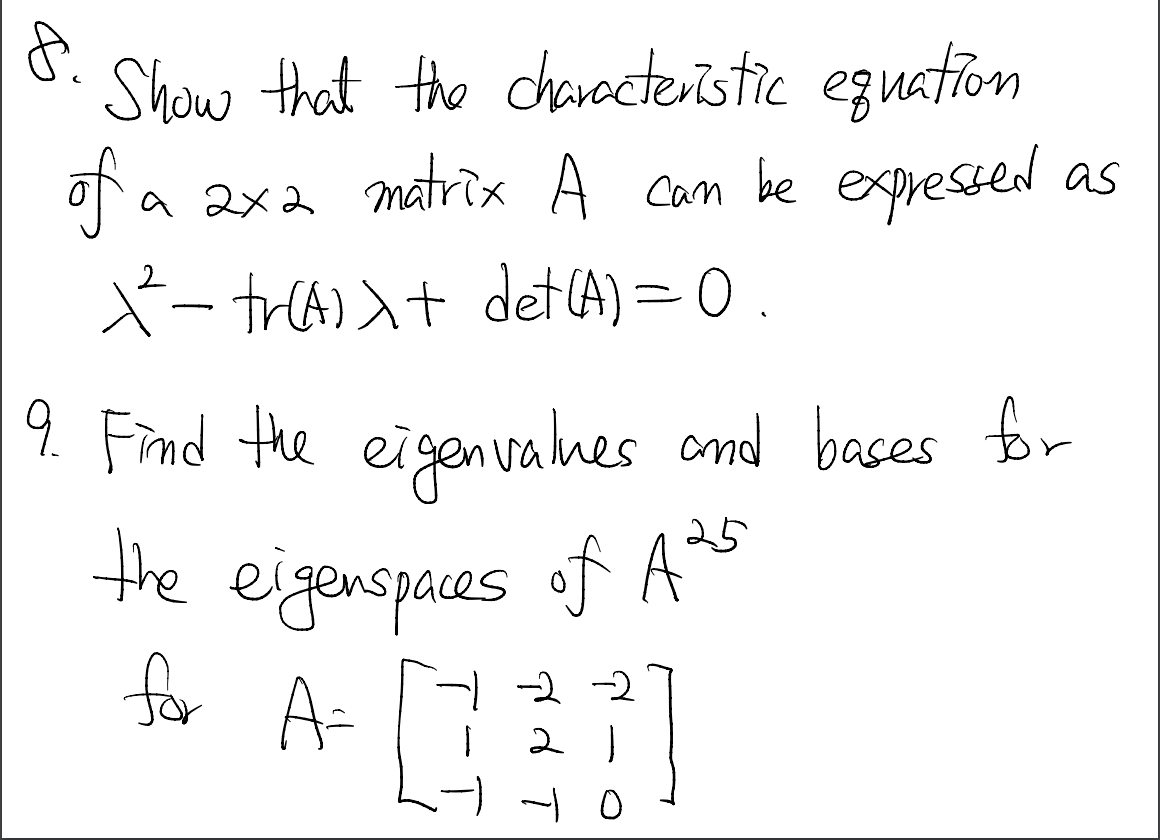 8. Show that the characteristic equation
of a 2x2 matrix A can be expressed as
λ² - tr(A) λ + det(A) = 0.
9. Find the eigenvalues and bases for
the eigenspaces of A²⁵
for A = [ -1 -2 -2
1 2 1
-1 -1 0 ]